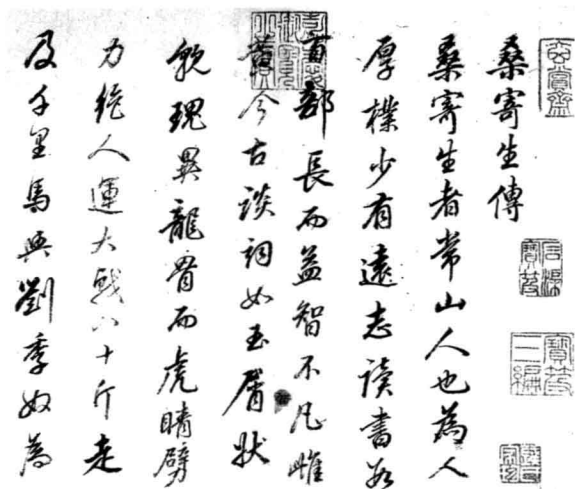 桑寄生傳
桑寄生者常山人也為人
厚樸少有遠志讀書數
百部長而益智不凡雌
黃今古談詞如玉屑狀
貌瑰異龍骨而虎睛臂
力絕人運大戟八十斤走
及千里馬與劉季奴為